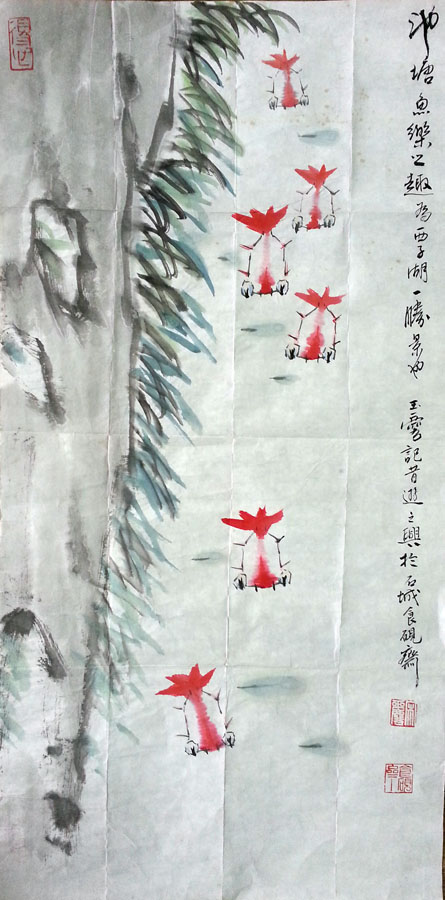 池塘魚樂之趣為西子湖一勝景也 玉雲記昔遊之興於石城食硯齋